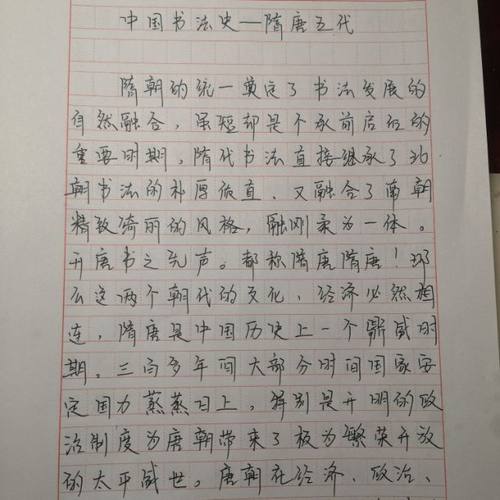 中国书法史—隋唐五代
隋朝的统一奠定了书法发展的
自然融合，虽短却是个承前启后的
重要时期，隋代书法直接继承了北
朝书法的朴厚俊直、又融合了南朝
精致绮丽的风格，融刚柔为一体。
开唐书之先声。都称隋唐隋唐！那
么这两个朝代的文化、经济必然相
连，隋唐是中国历史上一个鼎盛时
期。三百多年间大部分时间国家安
定国力蒸蒸日上，特别是开明的政
治制度为唐朝带来了极为繁荣开放
的太平盛世。唐朝在经济、政治、